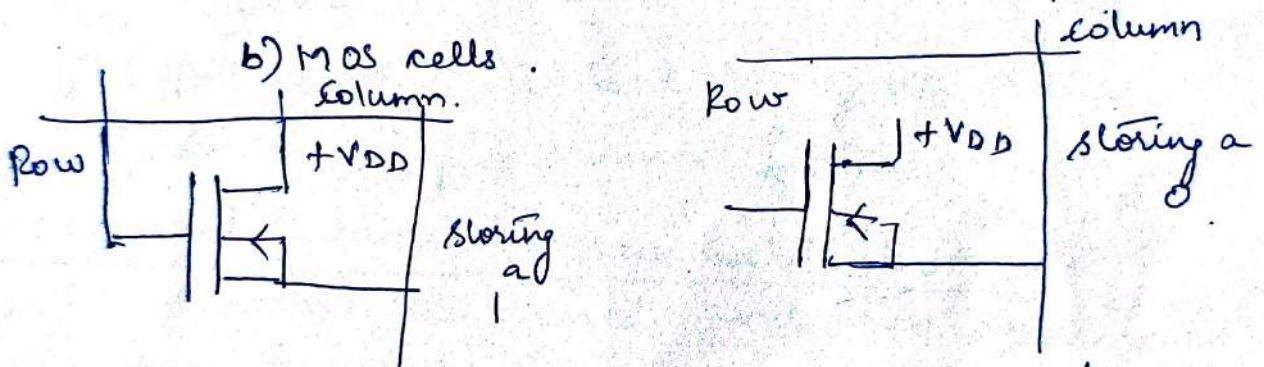 b) MOS cells.
column.
Row
+VDD
storing
a
1
column
Row
+VDD
storing a
0